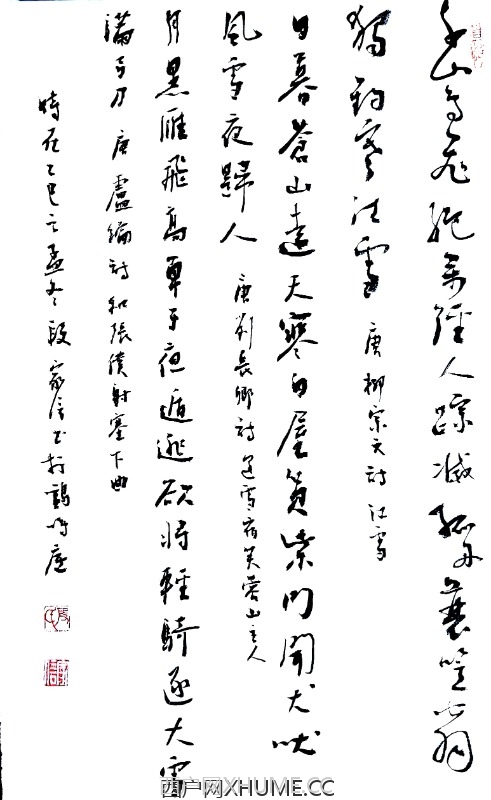 千山鳥飛絕萬徑人踪滅孤舟蓑笠翁
獨釣寒江雪 唐 柳宗元詩 江雪
日暮蒼山遠天寒白屋貧柴門聞犬吠
風雪夜歸人 唐劉長卿詩 逢雪宿芙蓉山主人
月黑雁飛高單于夜遁逃欲將輕騎逐大雪
滿弓刀 唐 盧綸詩 和張僕射塞下曲
時在乙巳之孟冬 段家信書於鶴鳴廬
西户网XHUME.CC